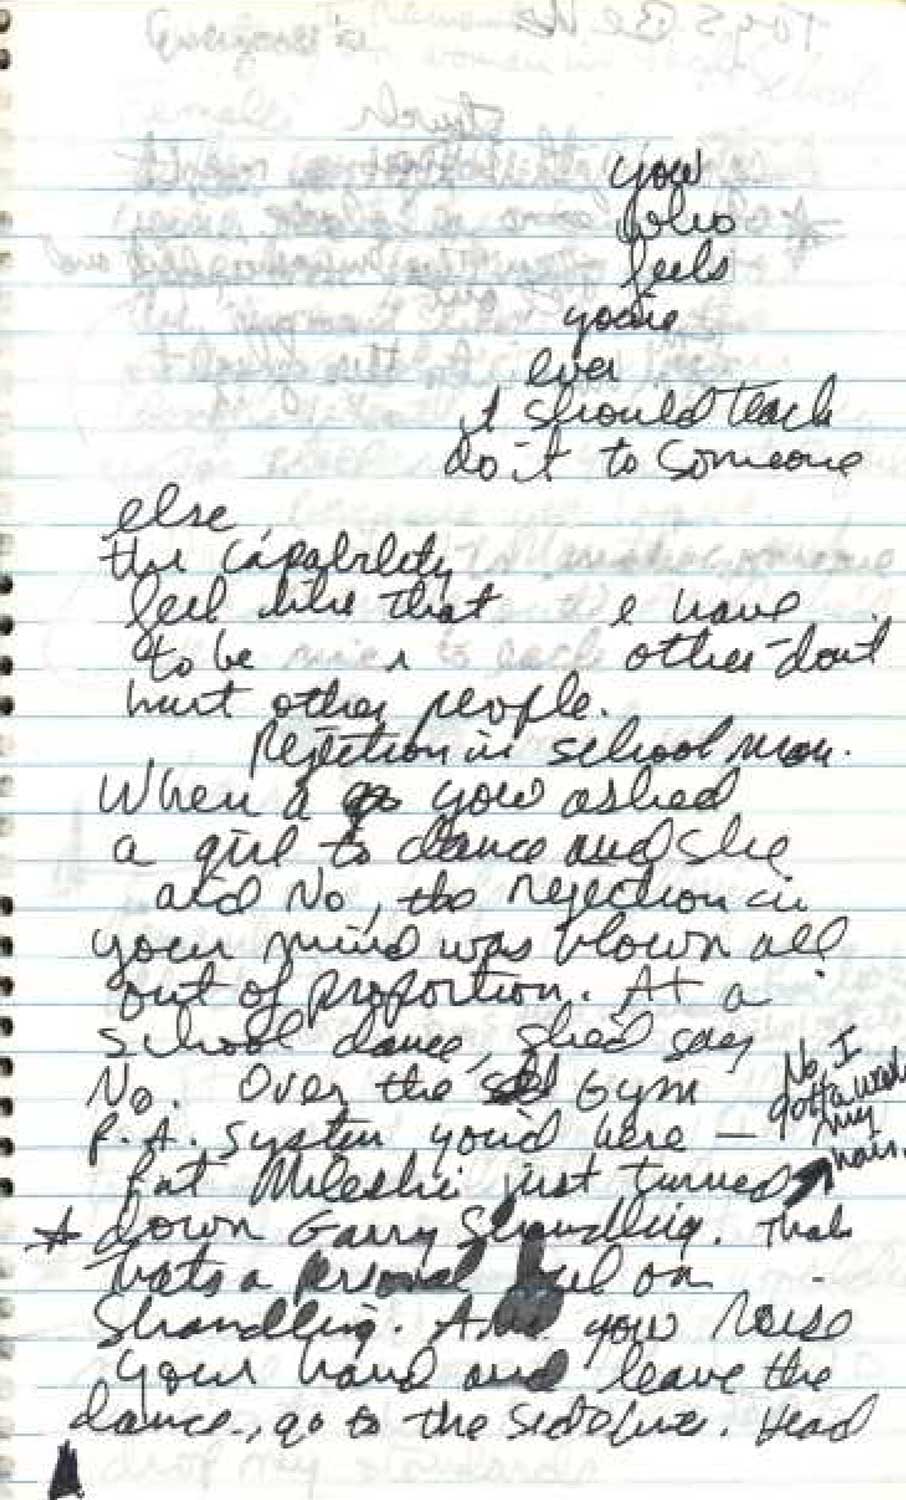 you
who
feels
you're
ever
it should teach
do it to someone
else
the capability
feel like that   e have
to be nicer to each other - don't
hurt other people.
Rejection in school man.
When a you asked
a girl to dance and she
and No, the rejection in
your mind was blown all
out of proportion. At a
school dance, she'd say
No. Over the Gym
P.A. System you'd here —
No, I
gotta wash
my
hair.
Pat Mileski just turned
down Garry Shandling. That
thats a personal foul on
Shandling. And you raise
your hand and leave the
dance, go to the sidelines. Head